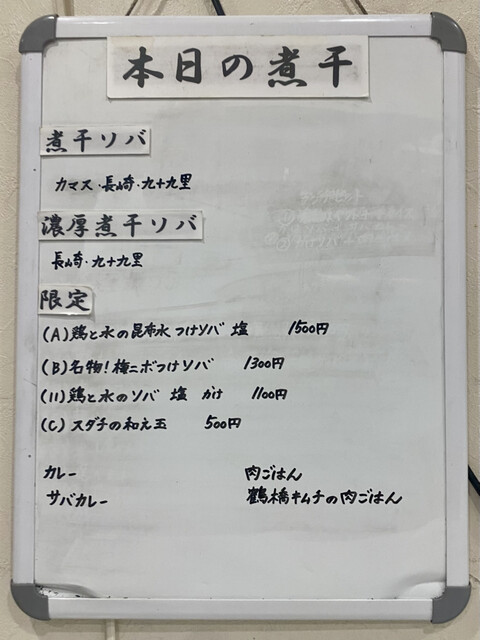 本日の煮干
煮干ソバ
カマス・長崎・九十九里
濃厚煮干ソバ
長崎・九十九里
限定
(A) 鶏と水の昆布水つけソバ 塩 1500円
(B) 名物!極ニボつけソバ 1300円
(11) 鶏と水のソバ 塩 かけ 1100円
(C) スダチの和え玉 500円
カレー 肉ごはん
サバカレー 鶴橋キムチの肉ごはん